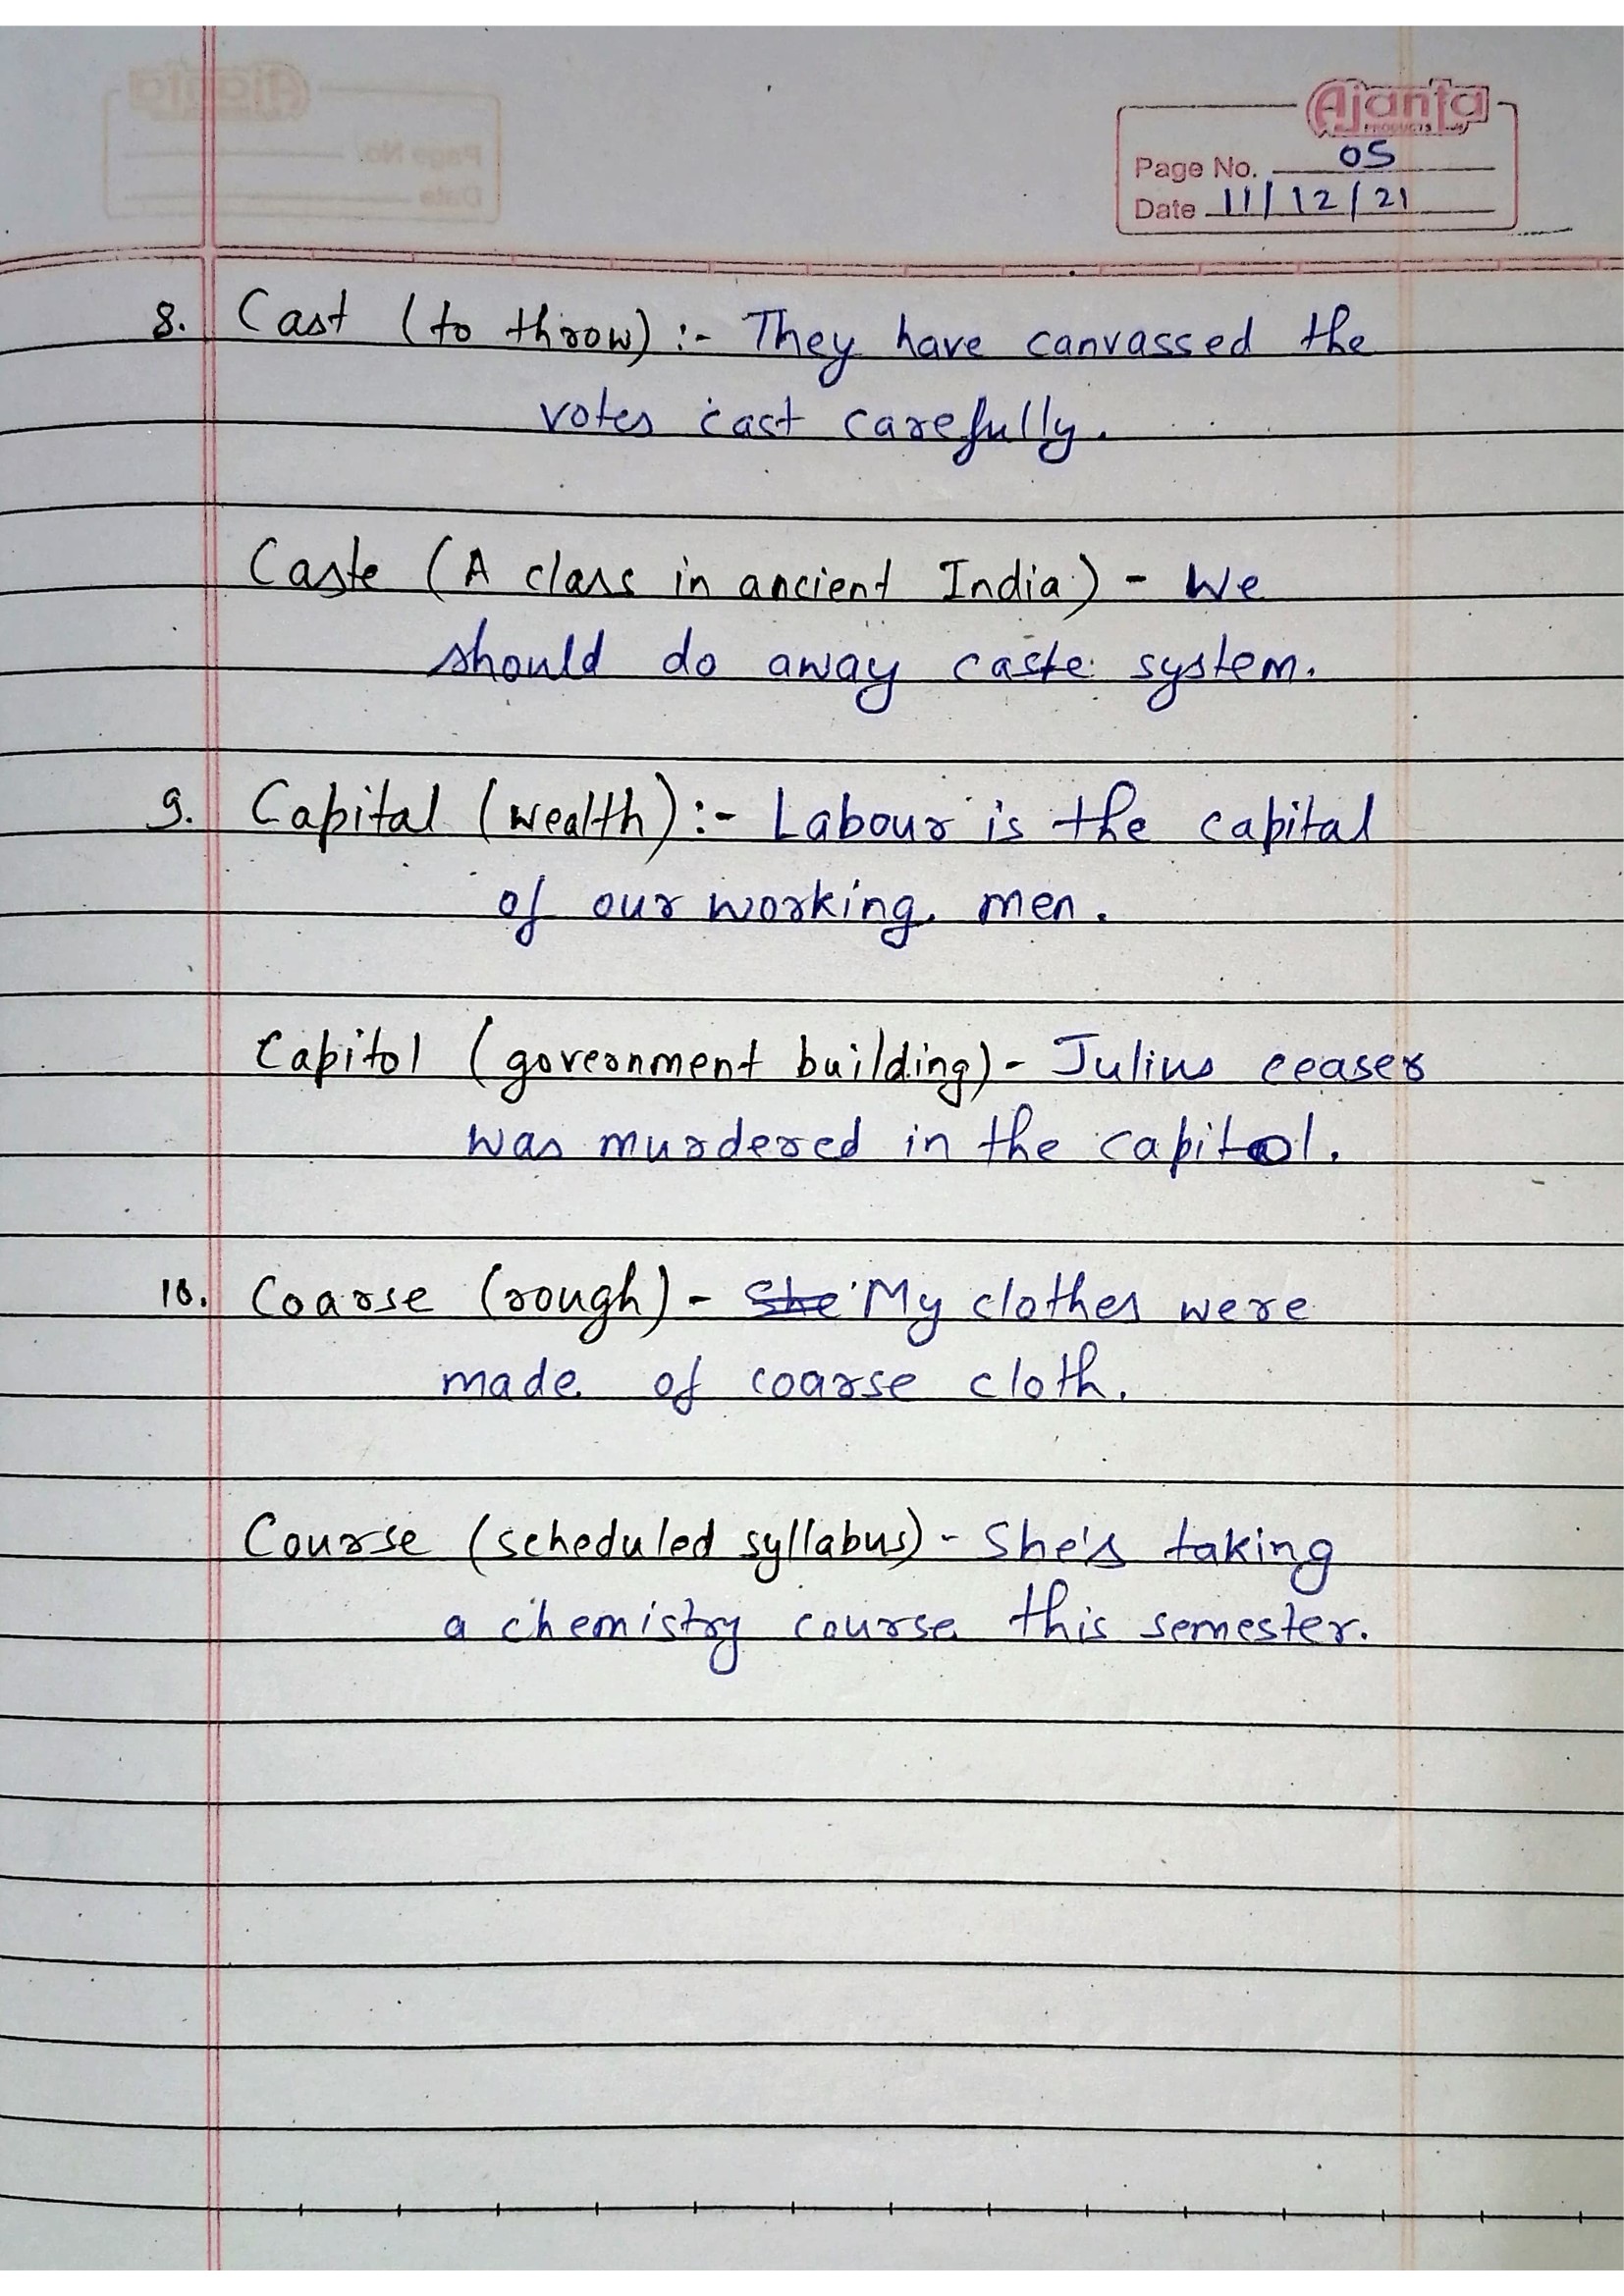 Ajanta
PRODUCTS
Page No. 05
Date 11/12/21
8. Cast (to throw) :- They have canvassed the
votes cast carefully.
Caste (A class in ancient India) - We
should do away caste system.
9. Capital (wealth) :- Labour is the capital
of our working men.
Capitol (government building) - Julius ceaser
was murdered in the capitol.
10. Coarse (rough) - She My clothes were
made of coarse cloth.
Course (scheduled syllabus) - She's taking
a chemistry course this semester.